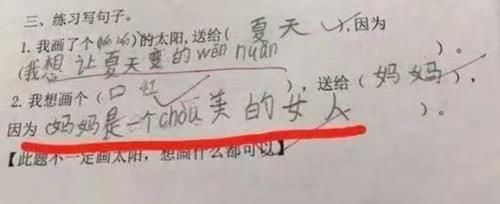 三、练习写句子。
1.我画了个()的太阳,送给(夏天),因为
(我想让夏天变的wēn nuǎn)。
2.我想画个(口红),送给(妈妈),
因为(妈妈是一个chòu美的女人)。
【此题不一定画太阳,想画什么都可以】